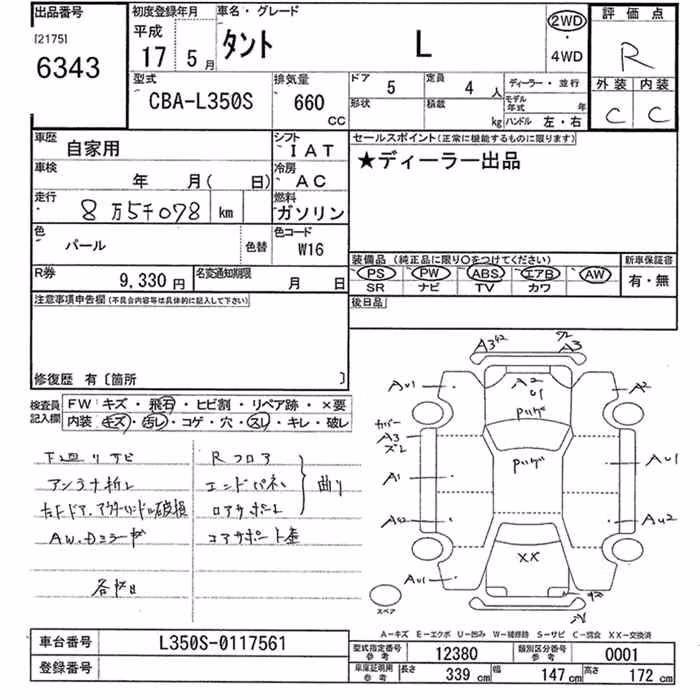 出品番号 初度登録年月 車名・グレード 評価点
[2175] 6343 平成 17 5月 タント L 2WD・4WD R
外装 内装 C C
型式 排気量 ドア 5 定員 4人 ディーラー・並行
CBA-L350S 660 CC 形状 積載 kg モデル年式 年 ハンドル 左・右
車歴 自家用 シフト IAT セールスポイント(正常に機能するものに限ります)
車検 年 月( 日) 冷房 AC ★ディーラー出品
走行 8万5千078 km 燃料 ガソリン
色 パール 色替 色コード W16
装備品(純正品に限り○をつけてください) 新車保証書
R券 9,330円 名変通知期限 月 日 PS PW ABS エアB AW 有・無
SR ナビ TV カワ
注意事項申告欄(不具合内容等は具体的に記入して下さい) 後日品
修復歴 有〔箇所 〕
検査員記入欄 FW:キズ・飛石・ヒビ割・リペア跡・×要
内装 キズ・汚レ・コゲ・穴・スレ・キレ・破レ
下廻りサビ Rフロア
アンテナ折レ エンドパネル 曲り
右Fドア、アウターハンドル破損 ロアサポート
AW、Dミラーキズ コアサポート歪
各凹
A3 A3
AU1 A2 U1 A2
カバー A3 ズレ
Pハゲ
Pハゲ
A1 AU1
AU2 AU2
XX
AU1
スペア
A-キズ E-エクボ U-凹み W-補修跡 S-サビ C-腐食 XX-交換済
車台番号 L350S-0117561 型式指定番号 参考 12380 類別区分番号 参考 0001
登録番号 車庫証明用 参考 長さ 339 cm 幅 147 cm 高さ 172 cm